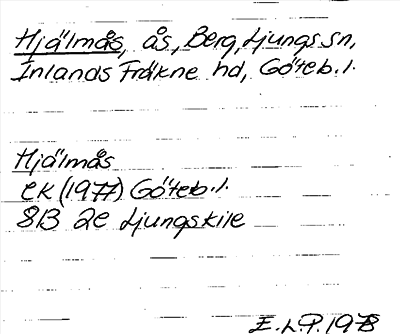 Hjälmås, ås, Berg, Ljungs sn,
Inlands Fräkne hd, Göteb. l.
Hjälmås
ek (1977) Göteb. l.
8B 2e Ljungskile
E. L. P. 1978